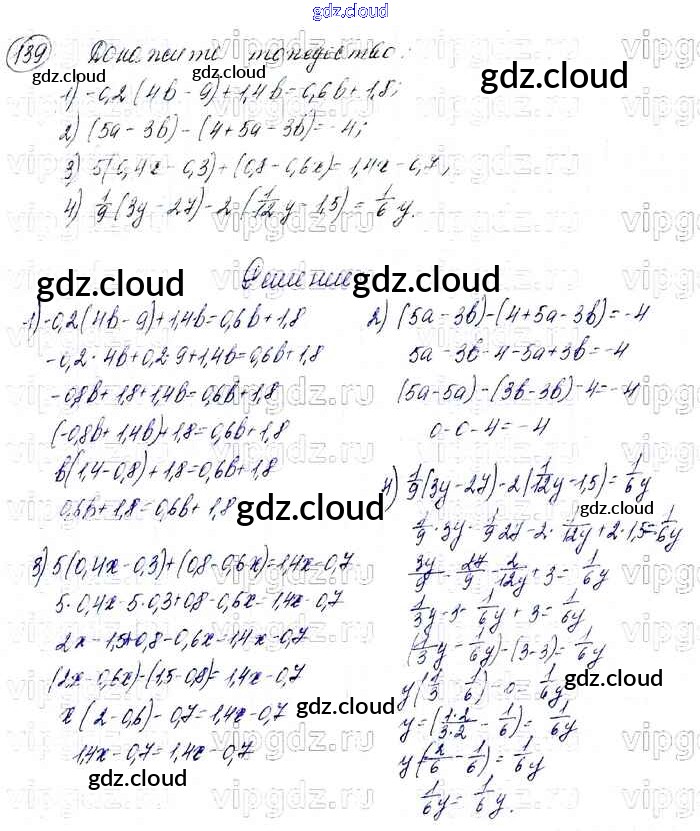 gdz.cloud
139 Докажите тождество:
1) -0,2(4b - 9) + 1,4b = 0,6b + 1,8;
2) (5a - 3b) - (4 + 5a - 3b) = -4;
3) 5(0,4x - 0,3) + (0,8 - 0,6x) = 1,4x - 0,7;
4) 1/9 (3y - 27) - 2(1/12 y - 1,5) = 1/6 y.
Решение
1) -0,2(4b - 9) + 1,4b = 0,6b + 1,8
-0,2 · 4b + 0,2 · 9 + 1,4b = 0,6b + 1,8
-0,8b + 1,8 + 1,4b = 0,6b + 1,8
(-0,8b + 1,4b) + 1,8 = 0,6b + 1,8
b(1,4 - 0,8) + 1,8 = 0,6b + 1,8
0,6b + 1,8 = 0,6b + 1,8
2) (5a - 3b) - (4 + 5a - 3b) = -4
5a - 3b - 4 - 5a + 3b = -4
(5a - 5a) - (3b - 3b) - 4 = -4
0 - 0 - 4 = -4
3) 5(0,4x - 0,3) + (0,8 - 0,6x) = 1,4x - 0,7
5 · 0,4x - 5 · 0,3 + 0,8 - 0,6x = 1,4x - 0,7
2x - 1,5 + 0,8 - 0,6x = 1,4x - 0,7
(2x - 0,6x) - (1,5 - 0,8) = 1,4x - 0,7
x(2 - 0,6) - 0,7 = 1,4x - 0,7
1,4x - 0,7 = 1,4x - 0,7
4) 1/9 (3y - 27) - 2(1/12 y - 1,5) = 1/6 y
1/9 · 3y - 1/9 · 27 - 2 · 1/12 y + 2 · 1,5 = 1/6 y
3y/9 - 27/9 - 2/12 y + 3 = 1/6 y
1/3 y - 3 - 1/6 y + 3 = 1/6 y
(1/3 y - 1/6 y) - (3 - 3) = 1/6 y
y(1/3 - 1/6) - 0 = 1/6 y
y = (1·2/3·2 - 1/6) = 1/6 y
y(2/6 - 1/6) = 1/6 y
1/6 y = 1/6 y.
gdz.cloud
gdz.cloud
gdz.cloud
gdz.cloud
gdz.cloud
gdz.cloud
gdz.cloud
gdz.cloud
gdz.cloud
gdz.cloud
gdz.cloud
vipgdz.ru